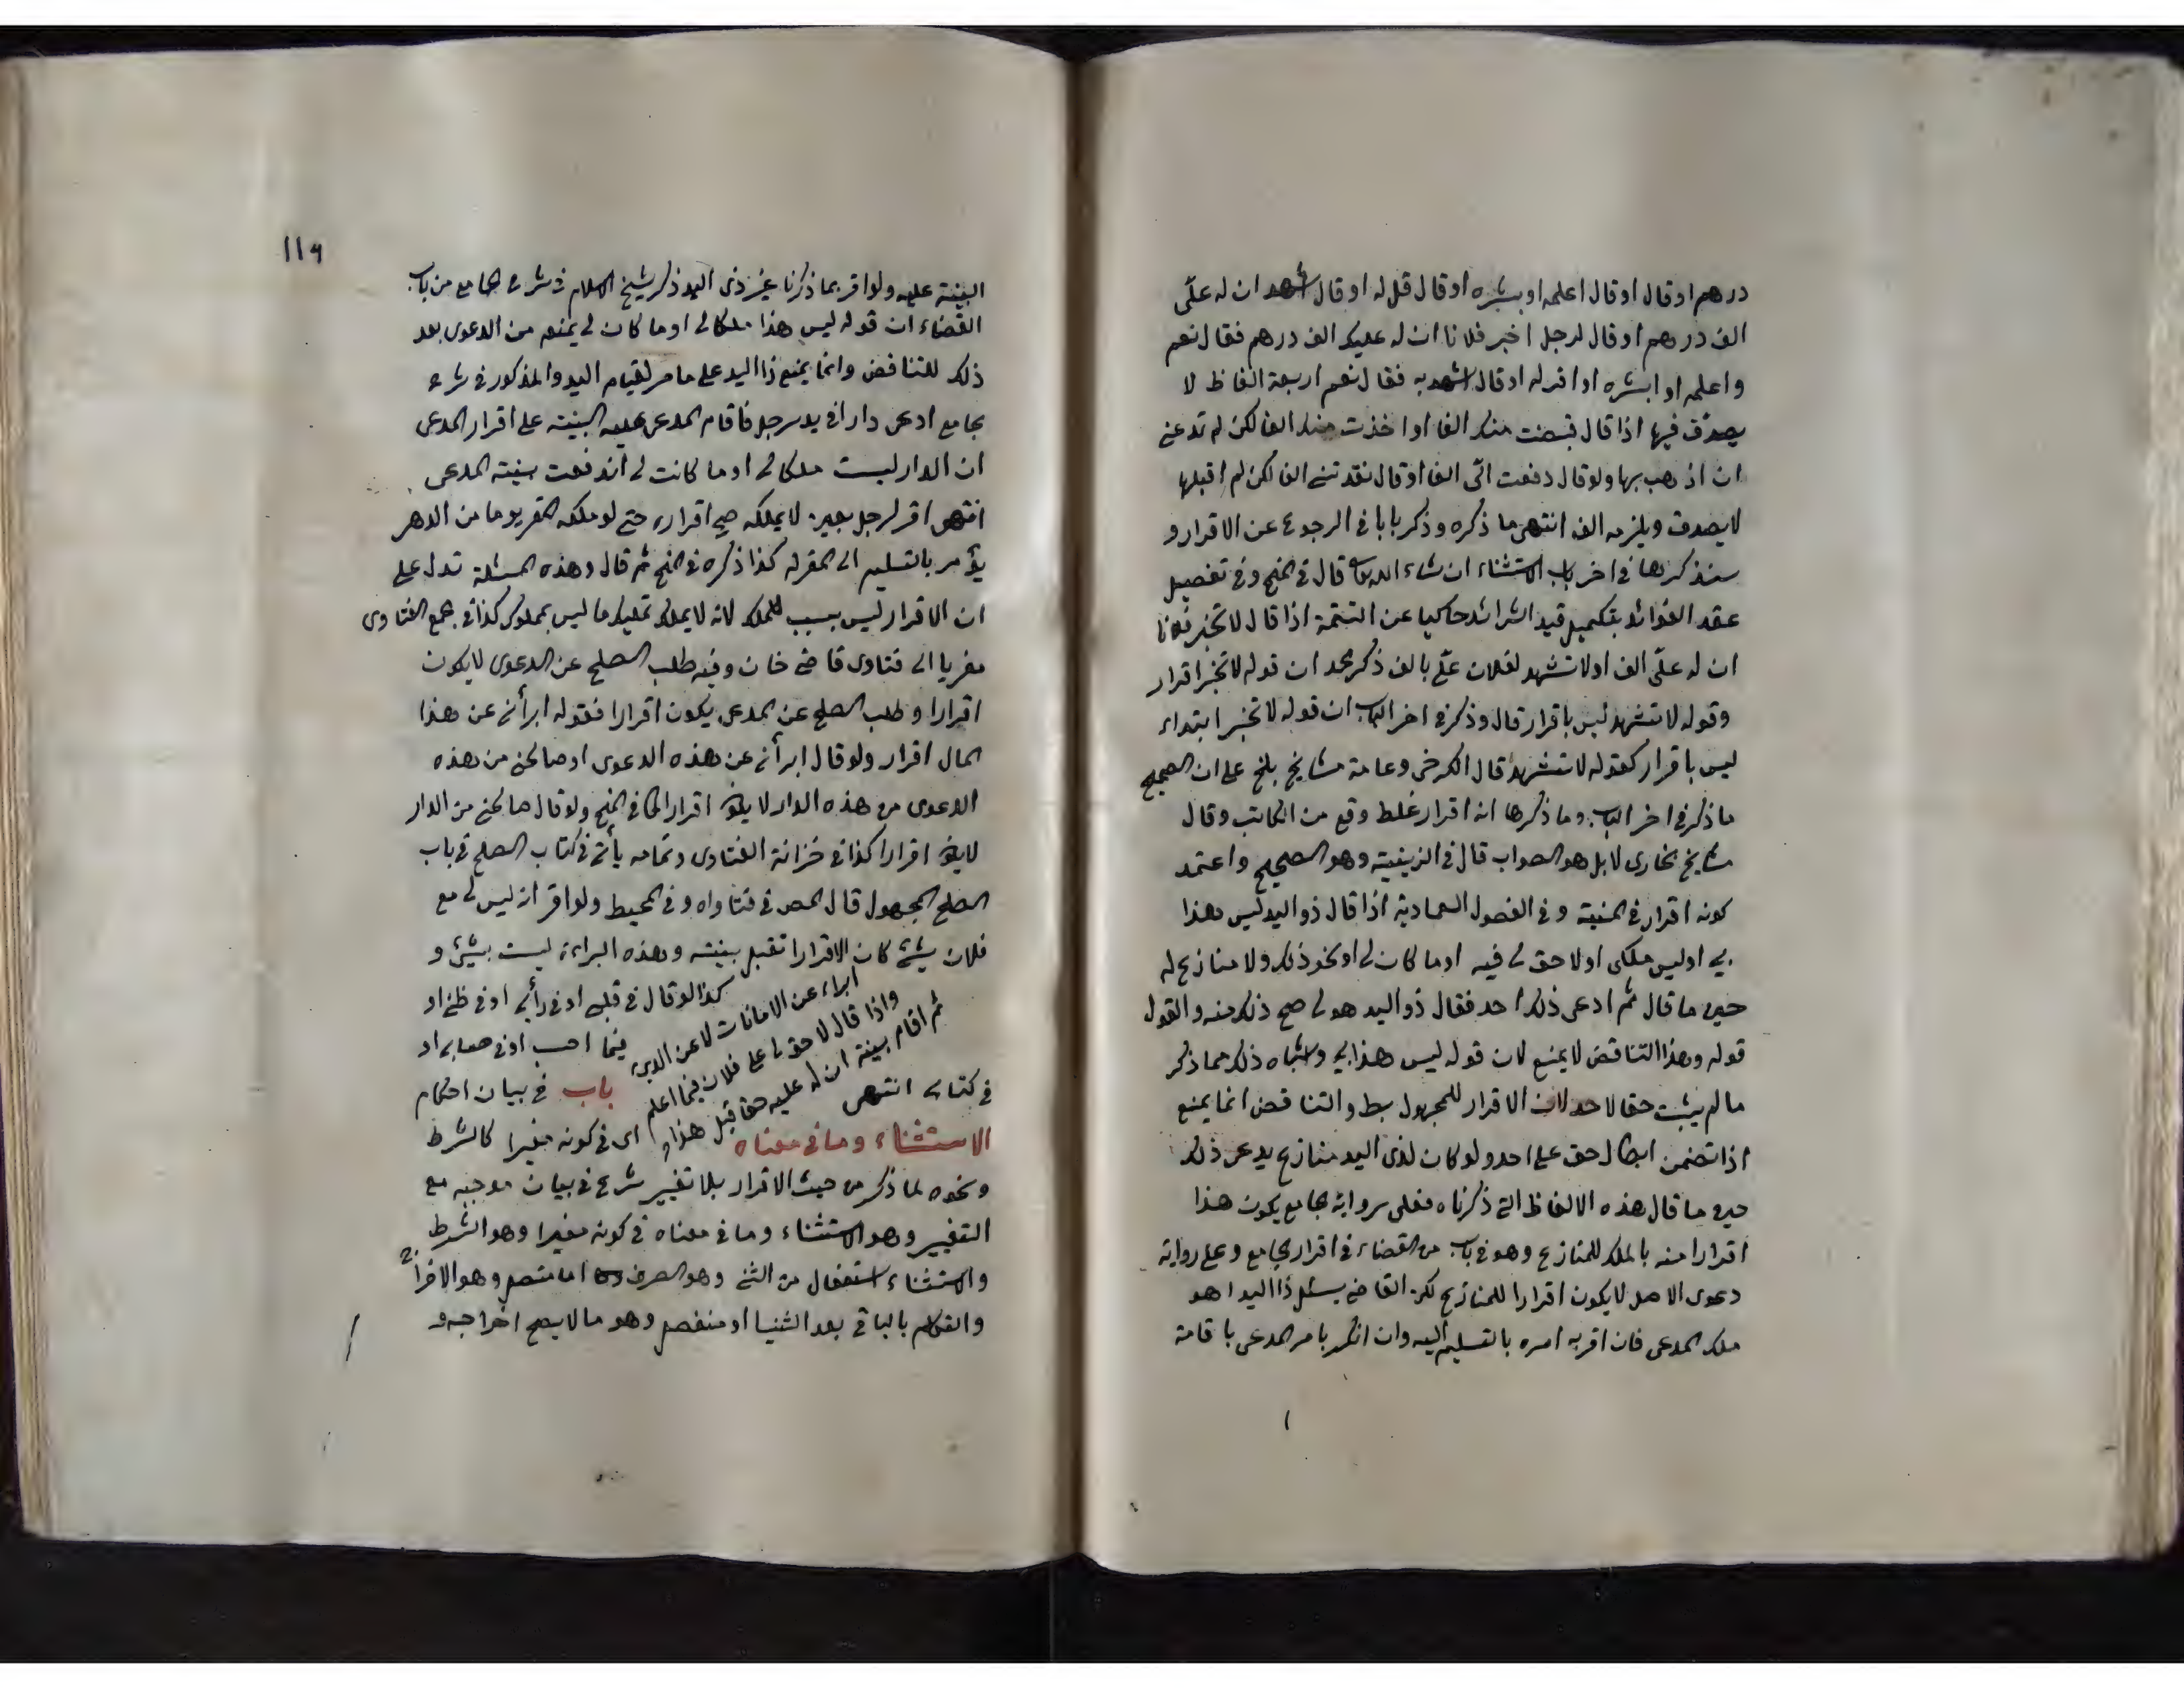 درهم او قال او قال اعلمه او بشره او قال قل له او قال اشهد ان له علّى
الف درهم او قال لرجل اخبر فلانا ان له عليك الف درهم فقال نعم
واعلمه او ابشره او اقر له او قال اشهد به فقال نعم اربعة الفاظ لا
يصدّق فيها اذا قال قبضت منك الفا او اخذت منك الفا لكن لم تدعنى
ان اذهب بها ولو قال دفعت الىّ الفا او قال نقدتنى الفا لكن لم اقبلها
لا يصدق ويلزمه الف انتهى ما ذكره وذكر بابا فى الرجوع عن الاقرار و
سنذكرها فى اخر باب الاستثناء ان شاء الله تعالى قال فى المنح وفى تفصيل
عقد الفوائد بتكميل قيد الشرائد حاكيا عن التتمة اذا قال لا تخبر فلانا
ان له علّى الف او لا تشهد لفلان علّى بالف ذكر محمد ان قوله لا تخبر اقرار
وقوله لا تشهد ليس باقرار قال وذكر فى اخر الباب ان قوله لا تخبر ابتداء
ليس باقرار كقوله لا تشهد قال الكرخى وعامة مشايخ بلخ على ان الصحيح
ما ذكر فى اخر الباب وما ذكرها انه اقرار غلط وقع من الكاتب وقال
مشايخ بخارى لا بل هو الصواب قال فى الزينية وهو الصحيح واعتمد
كونه اقرار فى المنية وفى الفصول العمادية اذا قال ذو اليد ليس هذا
لى او ليس ملكى او لا حق لى فيه او ما كان لى او نحو ذلك ولا منازع له
حين ما قال ثم ادعى ذلك احد فقال ذو اليد هو لى صح ذلك منه والقول
قوله وهذا التناقض لا يمنع لان قوله ليس هذا لى واشباه ذلك مما ذكر
ما لم يثبت حقا لاحد لان الاقرار للمجهول بط والتناقض انما يمنع
اذا تضمن ابطال حق على احد ولو كان لذى اليد منازع يدعى ذلك
حين ما قال هذه الالفاظ التى ذكرناه فعلى رواية الجامع يكون هذا
اقرارا منه بالملك للمنازع وهو فى باب من القضاء فى اقرار الجامع وعلى رواية
دعوى الاصل لا يكون اقرارا للمنازع لكن القاضى يسئل ذا اليد اهو
ملك المدعى فان اقر به امره بالتسليم اليه وان انكر يامر المدعى باقامة
119
البينة عليه ولو اقر بما ذكرنا غير ذى اليد ذكر شيخ الاسلام فى شرح الجامع من باب
القضاء ان قوله ليس هذا ملكا لى او ما كان لى يمنعه من الدعوى بعد
ذلك للتناقض وانما يمنع ذا اليد على ما مر لقيام اليد والمذكور فى شرح
الجامع ادعى دارا فى يد رجل فاقام المدعى عليه البينة على اقرار المدعى
ان الدار ليست ملكا لى او ما كانت لى اندفعت بينة المدعى
انتهى اقر لرجل بعين لا يملكه صح اقراره حتى لو ملكه المقر يوما من الدهر
يؤمر بالتسليم الى المقر له كذا ذكره فى المنح ثم قال وهذه المسئلة تدل على
ان الاقرار ليس بسبب للملك لانه لا يملك تمليك ما ليس بمملوك كذا فى مجمع الفتاوى
معزيا الى فتاوى قاضى خان وفيه طلب الصلح عن الدعوى لا يكون
اقرارا وطلب الصلح عن المدعى يكون اقرارا فقوله ابرأنى عن هذا
المال اقرار ولو قال ابرأنى عن هذه الدعوى او صالحنى من هذه
الدعوى من هذه الدار لا يكون اقرارا كما فى المنح ولو قال صالحنى من الدار
لا يكون اقرارا كذا فى خزانة الفتاوى وتمامه يأتى فى كتاب الصلح فى باب
الصلح المجهول قال المص فى فتاواه وفى المحيط ولو اقر انه ليس لى مع
فلان شئ كان الاقرار تقبل بينته وهذه البراءة ليست بشئ و
ابراء عن الامانات لا عن الدين
واذا قال لا حق لى على فلان فيما اعلم
ثم اقام بينة ان له عليه حقا قبل هذا
كذا لو قال فى قلبى او فى رأيى او فى ظنى او
فيما احسب او فى حسابى او
فى كتابى انتهى باب فى بيان احكام
الاستثناء وما فى معناه اى فى كونه مغيرا كالشرط
ونحوه لما ذكر من حيث الاقرار بلا تغيير شرع فى بيان موجبه مع
التغيير وهو الاستثناء وما فى معناه فى كونه مغيرا وهو الشرط
والاستثناء استفعال من الثنى وهو الصرف اما متصل وهو الاخراج
والتكلم بالباقى بعد الثنيا او منفصل وهو ما لا يصح اخراجه و